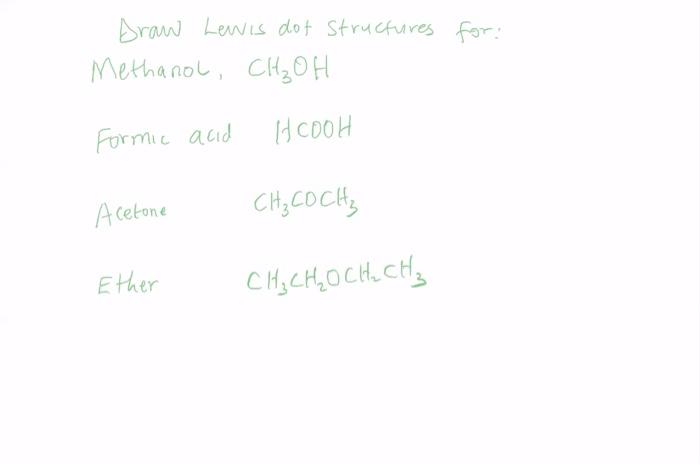 Draw Lewis dot structures for:
Methanol, CH₃OH
Formic acid HCOOH
Acetone CH₃COCH₃
Ether CH₃CH₂OCH₂CH₃